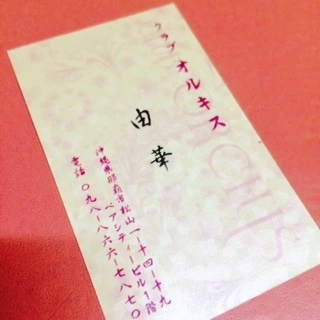 クラブ オルキス
由華
沖縄県那覇市松山一-十四-十九
ベアシティービル1階
電話 〇九八-八六六-七八七〇